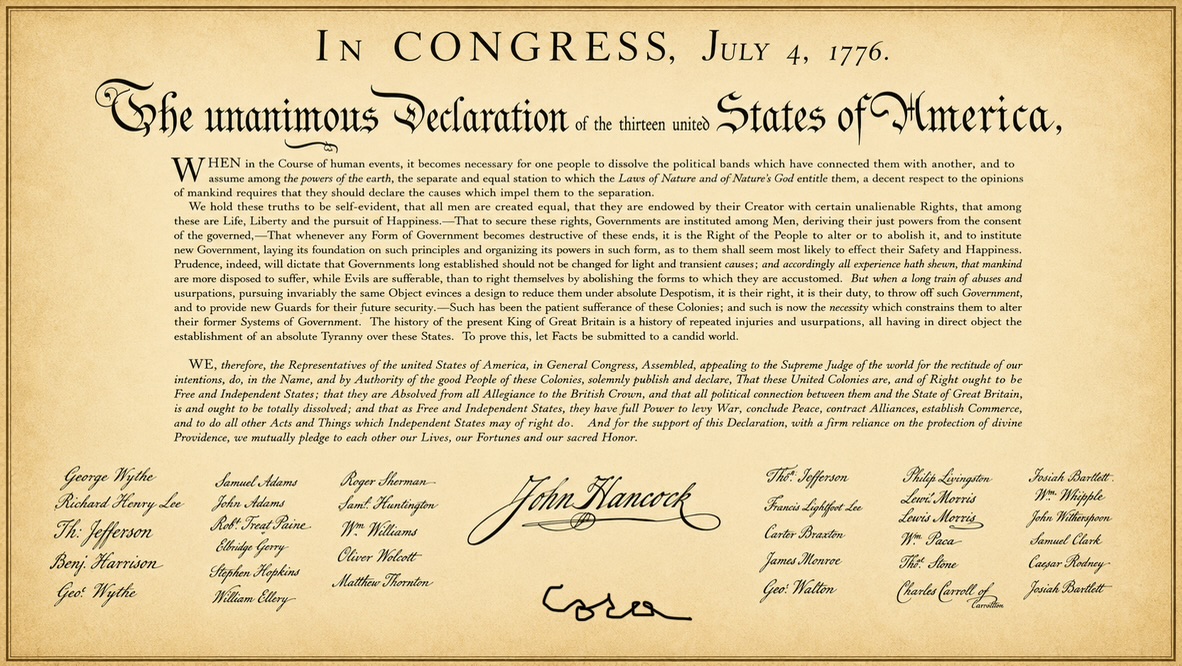 IN CONGRESS, JULY 4, 1776.
The unanimous Declaration of the thirteen united States of America,
WHEN in the Course of human events, it becomes necessary for one people to dissolve the political bands which have connected them with another, and to
assume among the powers of the earth, the separate and equal station to which the Laws of Nature and of Nature's God entitle them, a decent respect to the opinions
of mankind requires that they should declare the causes which impel them to the separation.
We hold these truths to be self-evident, that all men are created equal, that they are endowed by their Creator with certain unalienable Rights, that among
these are Life, Liberty and the pursuit of Happiness.—That to secure these rights, Governments are instituted among Men, deriving their just powers from the consent
of the governed,—That whenever any Form of Government becomes destructive of these ends, it is the Right of the People to alter or to abolish it, and to institute
new Government, laying its foundation on such principles and organizing its powers in such form, as to them shall seem most likely to effect their Safety and Happiness.
Prudence, indeed, will dictate that Governments long established should not be changed for light and transient causes; and accordingly all experience hath shewn, that mankind
are more disposed to suffer, while Evils are sufferable, than to right themselves by abolishing the forms to which they are accustomed. But when a long train of abuses and
usurpations, pursuing invariably the same Object evinces a design to reduce them under absolute Despotism, it is their right, it is their duty, to throw off such Government,
and to provide new Guards for their future security.—Such has been the patient sufferance of these Colonies; and such is now the necessity which constrains them to alter
their former Systems of Government. The history of the present King of Great Britain is a history of repeated injuries and usurpations, all having in direct object the
establishment of an absolute Tyranny over these States. To prove this, let Facts be submitted to a candid world.
WE, therefore, the Representatives of the united States of America, in General Congress, Assembled, appealing to the Supreme Judge of the world for the rectitude of our
intentions, do, in the Name, and by Authority of the good People of these Colonies, solemnly publish and declare, That these United Colonies are, and of Right ought to be
Free and Independent States; that they are Absolved from all Allegiance to the British Crown, and that all political connection between them and the State of Great Britain,
is and ought to be totally dissolved; and that as Free and Independent States, they have full Power to levy War, conclude Peace, contract Alliances, establish Commerce,
and to do all other Acts and Things which Independent States may of right do. And for the support of this Declaration, with a firm reliance on the protection of divine
Providence, we mutually pledge to each other our Lives, our Fortunes and our sacred Honor.
George Wythe
Richard Henry Lee
Th: Jefferson
Benj. Harrison
Geo: Wythe
Samuel Adams
John Adams
Robt. Treat Paine
Elbridge Gerry
Stephen Hopkins
William Ellery
Roger Sherman
Saml. Huntington
Wm. Williams
Oliver Wolcott
Matthew Thornton
John Hancock
Cora
Thos. Jefferson
Francis Lightfoot Lee
Carter Braxton
James Monroe
Geo: Walton
Philip Livingston
Lewi. Morris
Lewis Morris
Wm. Paca
Thos. Stone
Charles Carroll of
Carrollton
Josiah Bartlett
Wm. Whipple
John Witherspoon
Samuel Clark
Caesar Rodney
Josiah Bartlett